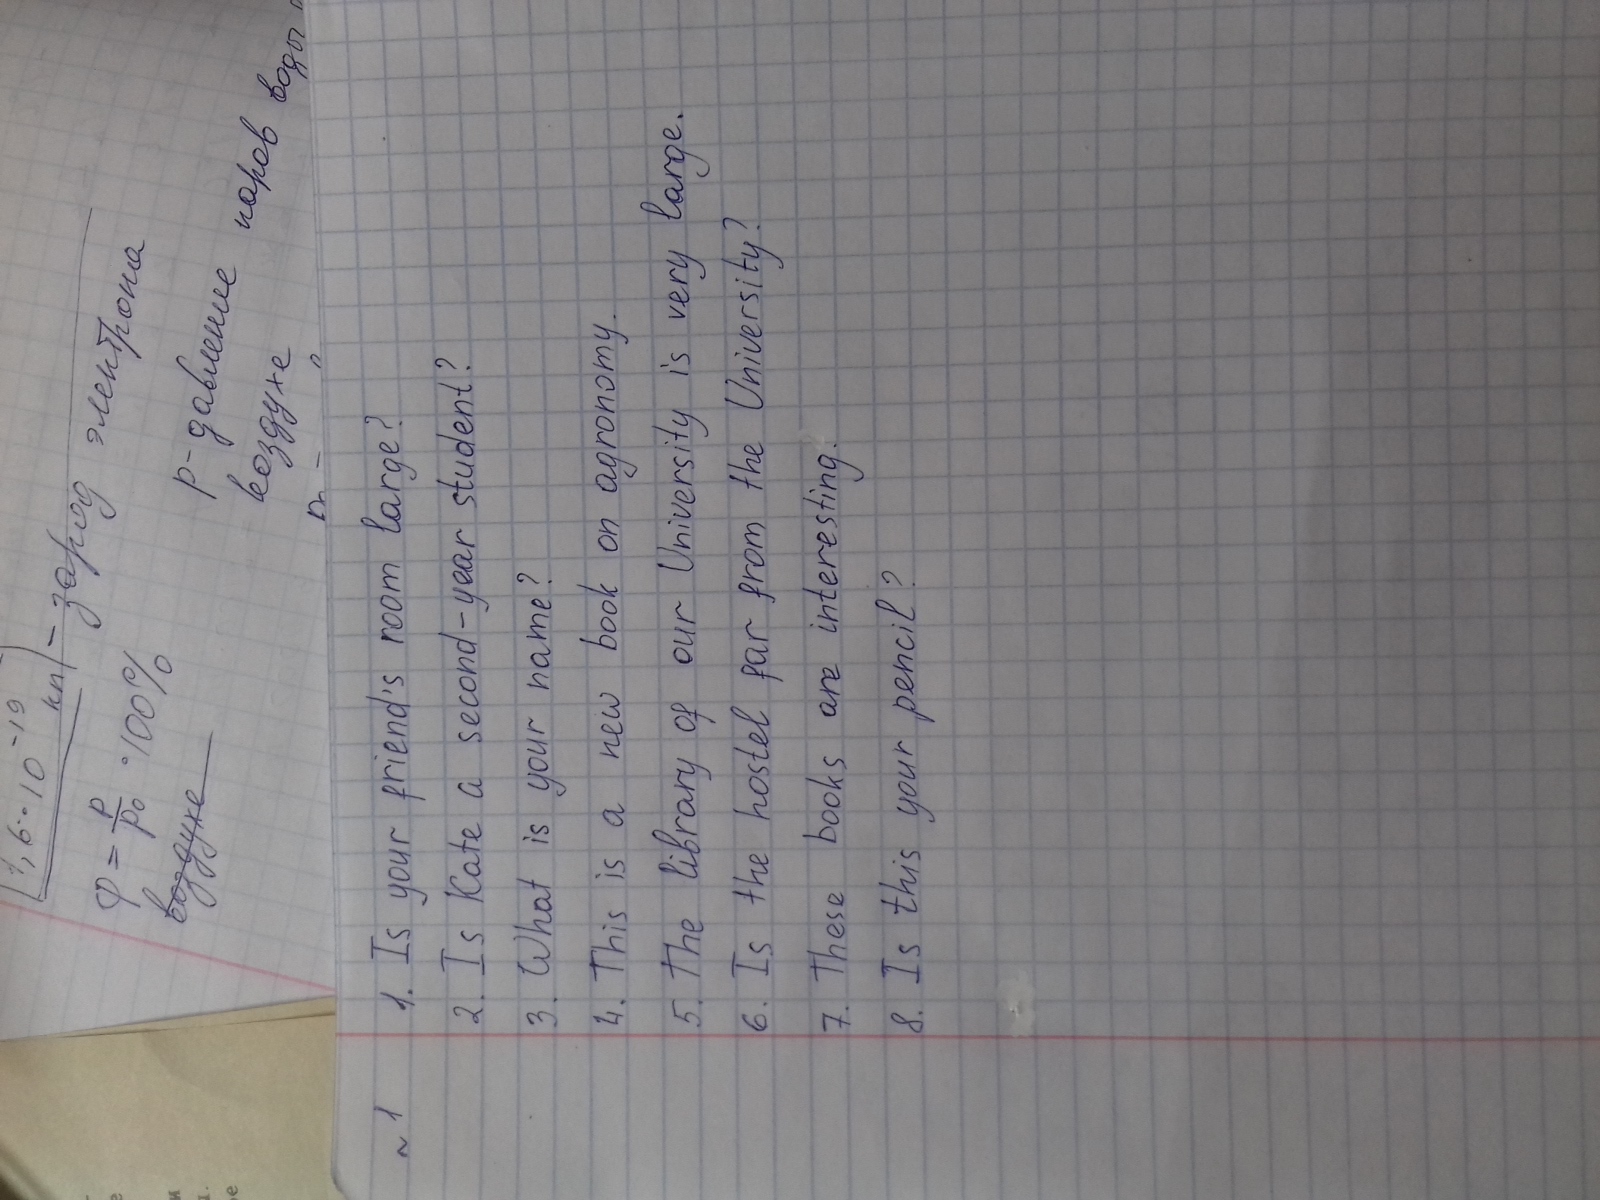 1,6·10⁻¹⁹ кл – заряд электрона
φ = p/p₀ · 100%
воздухе
p – давление паров воды
воздухе
~1
1. Is your friend's room large?
2. Is Kate a second-year student?
3. What is your name?
4. This is a new book on agronomy.
5. The library of our University is very large.
6. Is the hostel far from the University?
7. These books are interesting.
8. Is this your pencil?